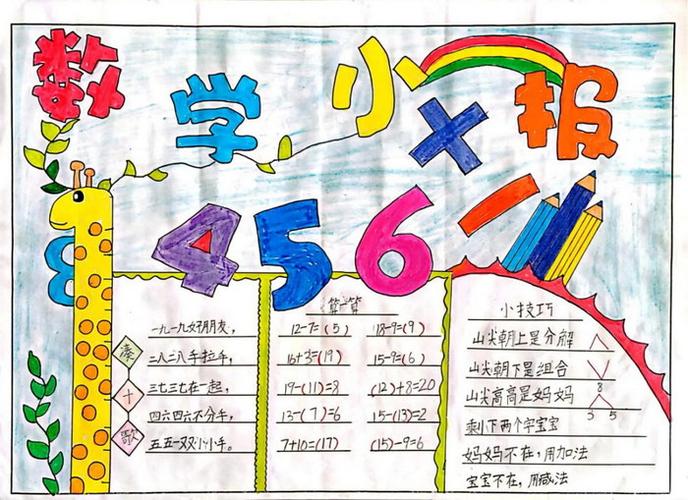 数学小报
×
8 4 5 6 一
凑十歌
一九一九好朋友，
二八二八手拉手，
三七三七在一起，
四六四六不分手，
五五一双小小手。
算一算
12-7=(5) 18-9=(9)
16+3=(19) 15-9=(6)
19-(11)=8 (12)+8=20
13-(7)=6 15-(13)=2
7+10=(17) (15)-9=6
小技巧
山尖朝上是分解
山尖朝下是组合
8
山尖高高是妈妈
3 5
剩下两个字宝宝
妈妈不在，用加法
宝宝不在，用减法